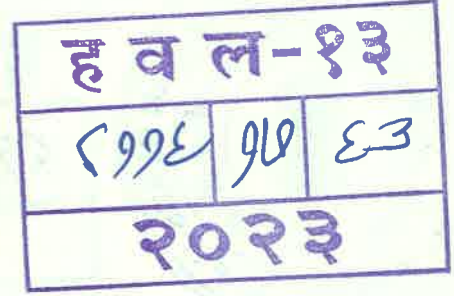 हवल-१३
८११६ १७ ६३
२०२३